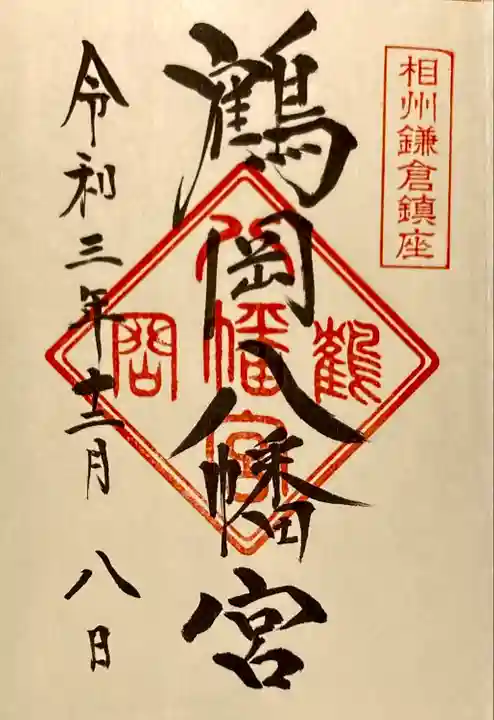 相州鎌倉鎮座
鶴岡八幡宮
鶴
八幡宮
岡
令和三年十二月八日